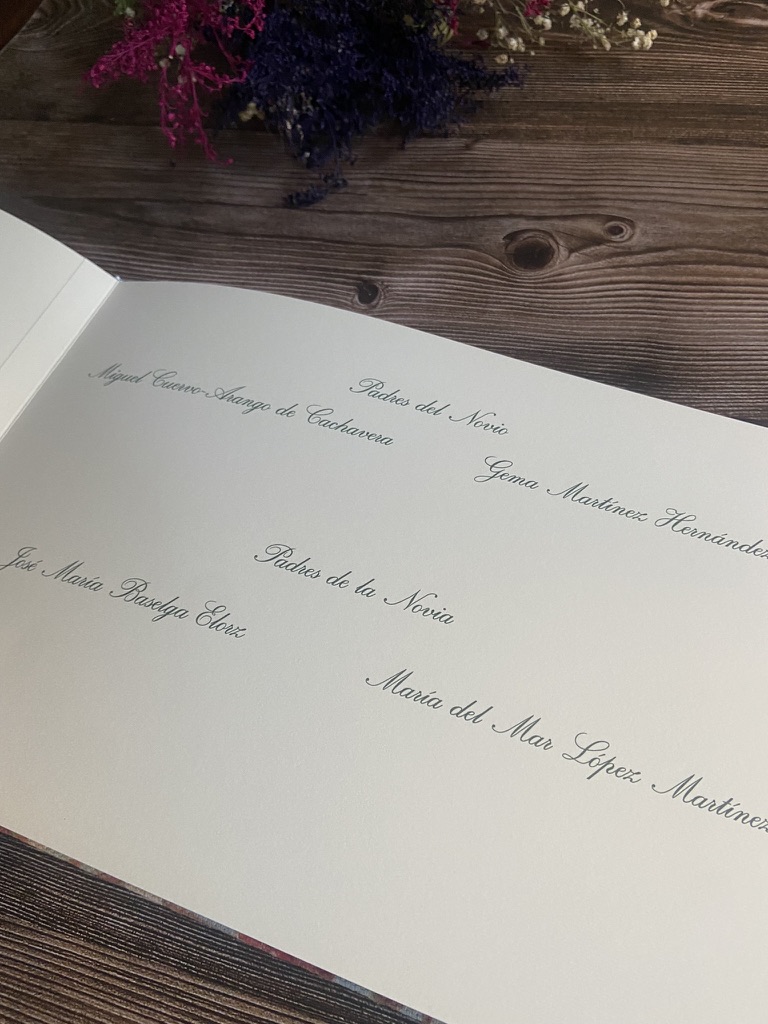 Padres del Novio
Miguel Cuervo-Arango de Cachavera
Gema Martínez Hernández
Padres de la Novia
José María Baselga Elorz
María del Mar López Martínez